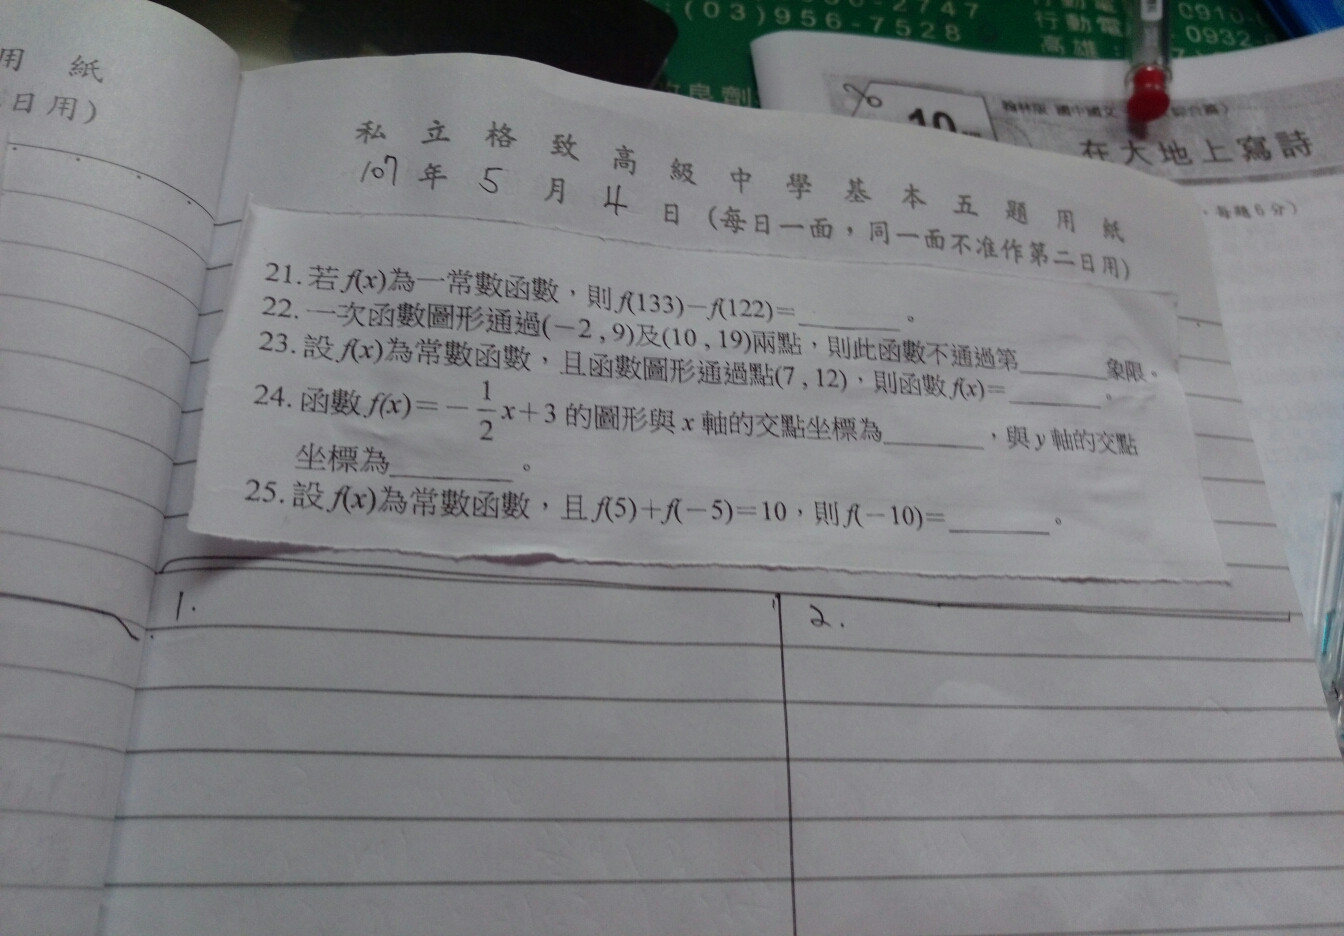 (03)956-7528
行動電
0910-
行動電
0932-
高雄:
用 紙
日用)
10
在大地上寫詩
,每題6分)
私立格致高級中學基本五題用紙
107年5月4日(每日一面,同一面不准作第二日用)
21.若f(x)為一常數函數,則f(133)-f(122)=________。
22.一次函數圖形通過(-2,9)及(10,19)兩點,則此函數不通過第________象限。
23.設f(x)為常數函數,且函數圖形通過點(7,12),則函數f(x)=________。
24.函數f(x)=-1/2x+3的圖形與x軸的交點坐標為________,與y軸的交點
坐標為________。
25.設f(x)為常數函數,且f(5)+f(-5)=10,則f(-10)=________。
1.
2.